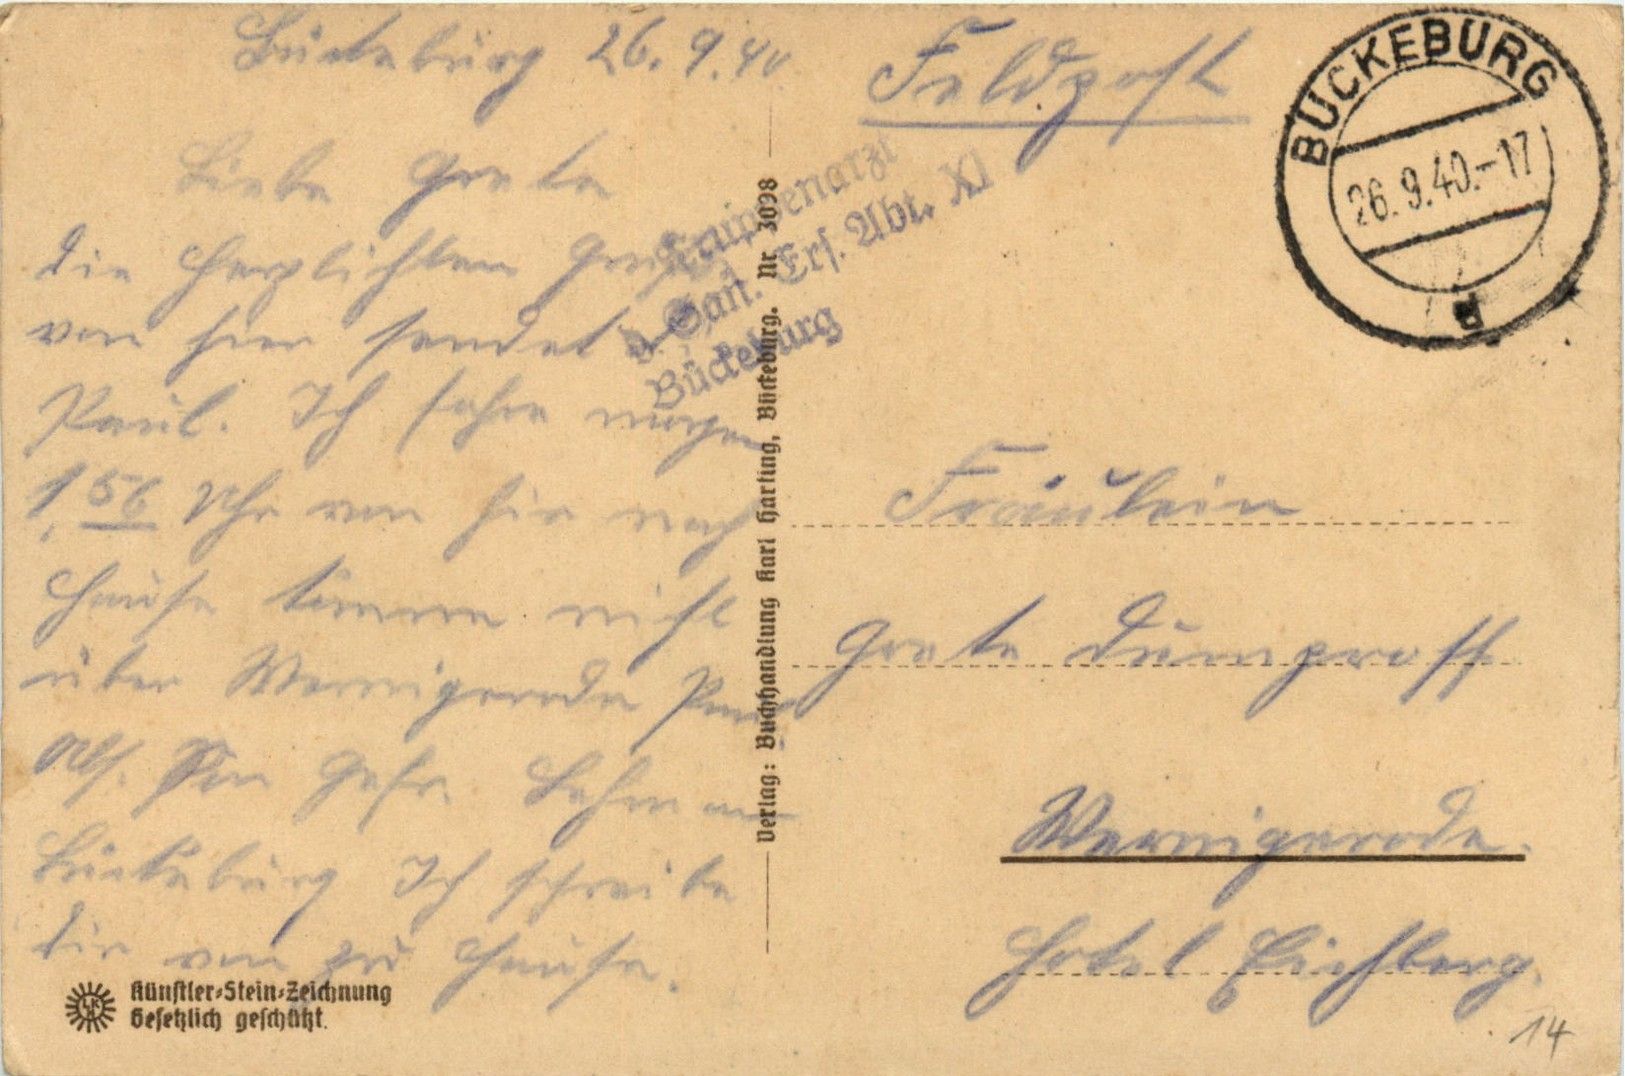 Bückeburg 26.9.40.
Liebe Grete
die herzlichsten Grüße
von hier sendet
Paul. Ich fahre morgen
1,56 Uhr von hir nach
Hause komme nicht
über Wernigerode
Abs. Gefr. Lehmann
Bückeburg Ich schreibe
dir von zu Hause.
Künstler-Stein-Zeichnung
Gesetzlich geschützt.
Verlag: Buchhandlung Karl Harting, Bückeburg. Nr. 3098
Truppenarzt
d. San. Ers. Abt. XI
Bückeburg
Feldpost
BÜCKEBURG
26.9.40.-17
a
Fräulein
Grete Dümproff
Wernigerode.
Hotel Eichberg.
14